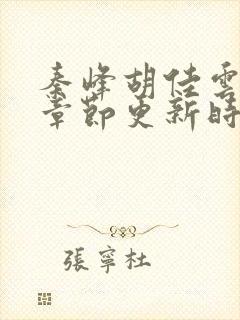 秦峰胡佳雲
章節更新時
張寧杜